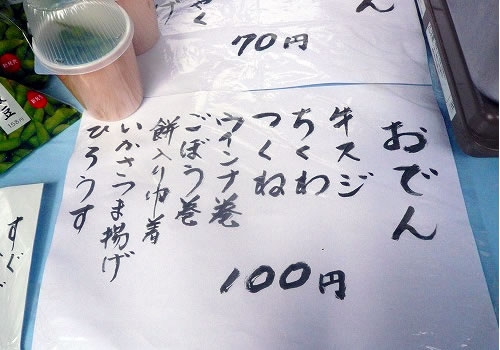 70円
おでん
牛スジ
ちくわ
つくね
ウインナ巻
ごぼう巻
餅入り巾着
いかさつま揚げ
ひろうす
100円
すぐ